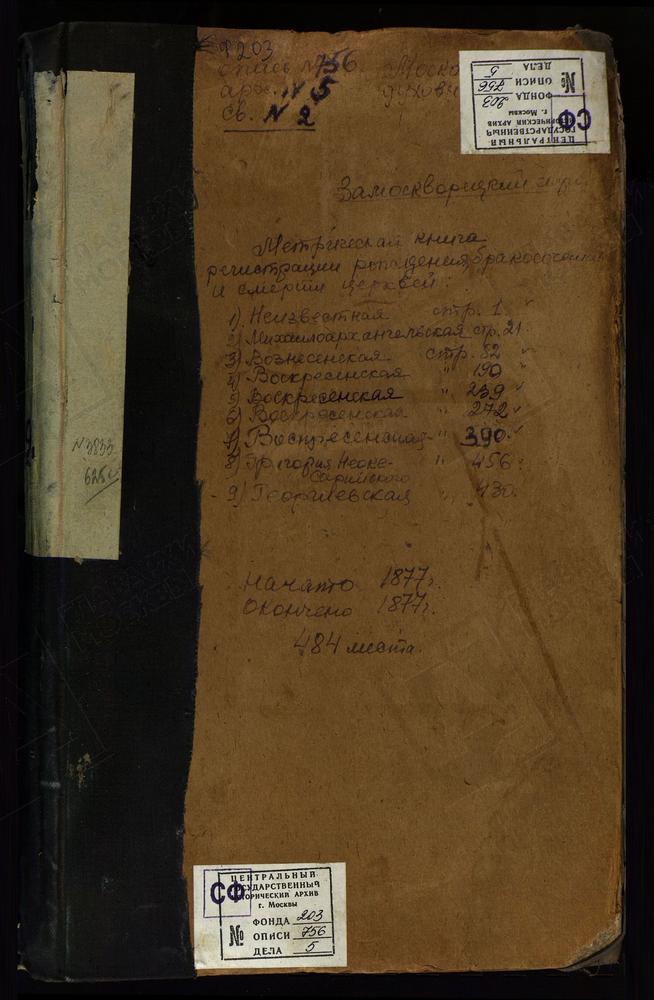 Ф 203
опись № 756. Моско
арх. № 5 духовн
св. № 2
ЦЕНТРАЛЬНЫЙ
ГОСУДАРСТВЕННЫЙ
ИСТОРИЧЕСКИЙ АРХИВ
г. Москвы
СФ
ФОНДА 203
№ ОПИСИ 756
ДЕЛА 5
Замоскворецкий
Метрическая книга
регистрации рождения, бракосочетания
и смерти церквей:
1) Неизвестная стр. 1
2) Михаилоархангельская стр. 21.
3) Вознесенская стр. 82
4) Воскресенская " 190
5) Воскресенская " 239
6) Воскресенская " 272
7) Воскресенская " 390.
8) Григория Неоке- " 456
сарийского
9) Георгиевская " 430.
N 3833
начато 1877г.
Окончено 1877г.
484 листа.
ЦЕНТРАЛЬНЫЙ
ГОСУДАРСТВЕННЫЙ
ИСТОРИЧЕСКИЙ АРХИВ
г. Москвы
СФ
ФОНДА 203
№ ОПИСИ 756
ДЕЛА 5